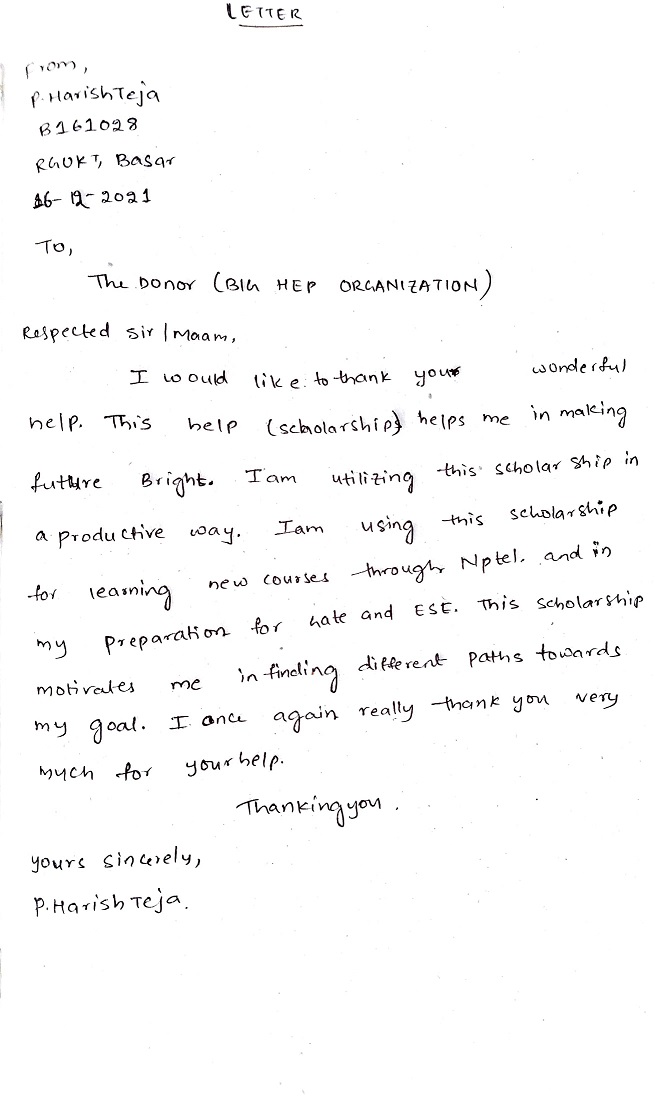 LETTER
From,
P. Harish Teja
B161028
RGUKT, Basar
16-12-2021
To,
The Donor (BIG HEP ORGANIZATION)
Respected sir/Maam,
I would like to thank your wonderful
help. This help (scholarship) helps me in making
future Bright. I am utilizing this scholar ship in
a productive way. I am using this scholarship
for learning new courses through Nptel. and in
my preparation for Gate and ESE. This scholarship
motivates me in finding different paths towards
my goal. I once again really thank you very
much for your help.
Thanking you.
yours sincerely,
P. Harish Teja.